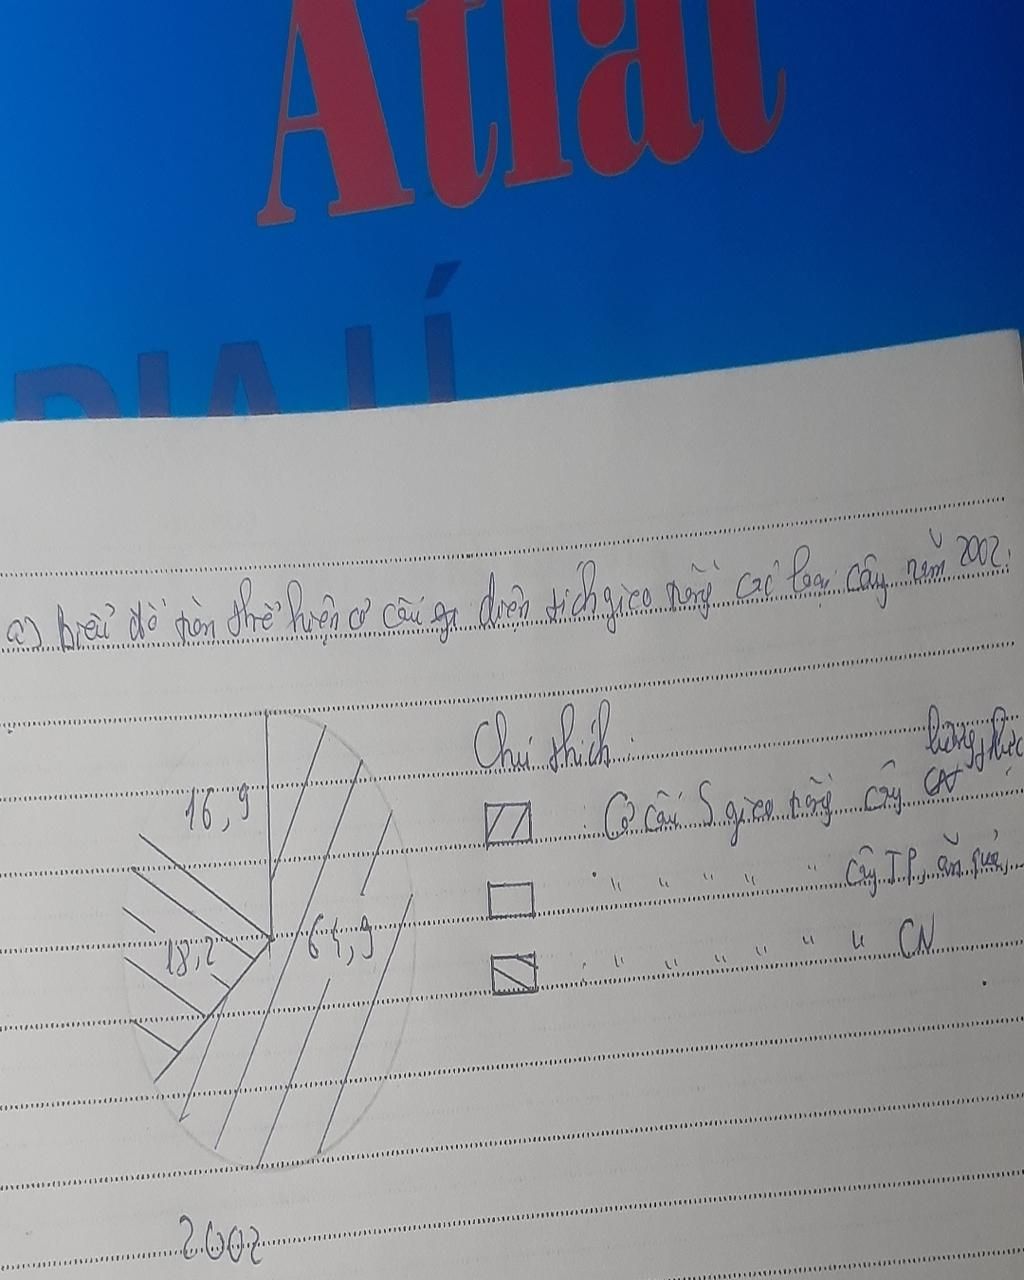 Atlat
ĐỊA LÍ
a) biểu đồ tròn thể hiện cơ cấu diện tích gieo trồng các loại cây năm 2002.
Chú thích:
lương thực
: Cơ cấu S gieo trồng cây
" " " " " cây TP, ăn quả,
: " " " " " " CN
16,9
18,2
64,9
2002